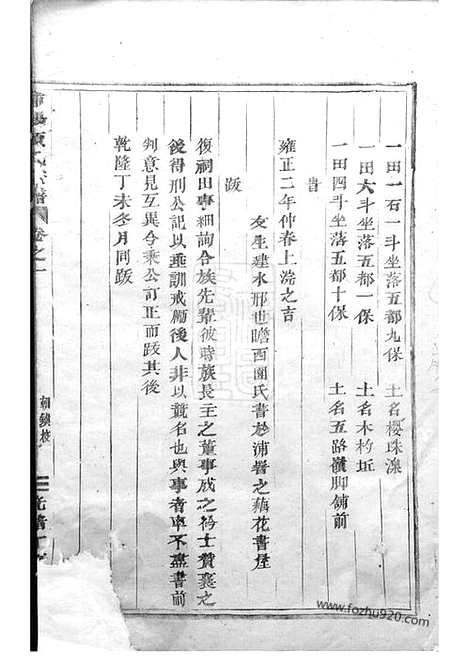 一田一石一斗坐落五都九保　土名櫻珠濠
一田六斗坐落五都一保　土名木杓坵
一田四斗坐落五都十保　土名五路嶺脚舖前
書
雍正二年仲春上浣之吉
友生建水邢世瞻西園氏書於浦署之藕花書屋
跋
復祠田專細詢合族先輩彼時族長主之董事成之衿士贊襄之
後得刑公記以垂訓戒勵後人非以競名也與事者率不盡書前
判意見互異今秉公訂正而跋其後
乾隆丁未冬月同跋
譜
卷之一
朝鎮校
www.fozhu920.com